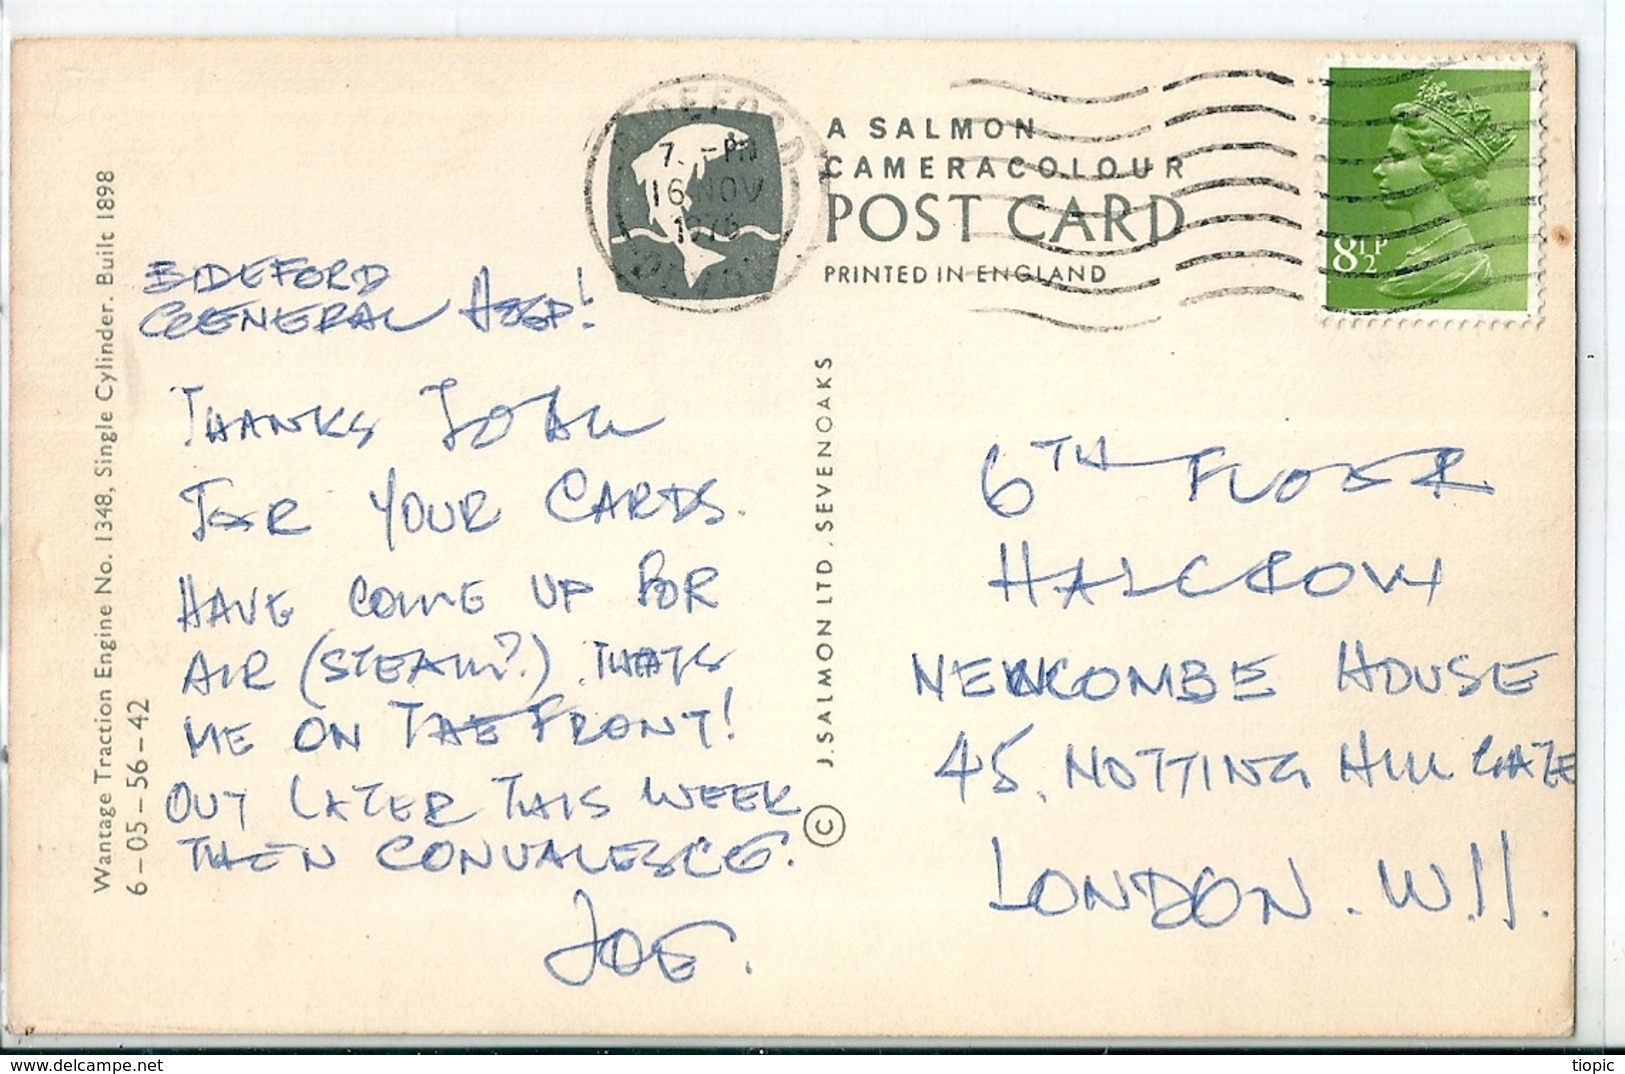 Wantage Traction Engine No. 1348, Single Cylinder. Built 1898
6-05-56-42
BIDEFORD
GENERAL HOSP!
THANKS JOHN
FOR YOUR CARDS.
HAVE COME UP FOR
AIR (STEAM?). THATS
ME ON THE FRONT!
OUT LATER THIS WEEK
THEN CONVALESCE.
JOE.
BIDEFORD
7. - PM
16 NOV
DEVON
A SALMON
CAMERACOLOUR
POST CARD
PRINTED IN ENGLAND
8½P
© J. SALMON LTD. SEVENOAKS
6TH FLOOR
HALCROW
NEWCOMBE HOUSE
45, NOTTING HILL GATE
LONDON. W.11.
tiopic